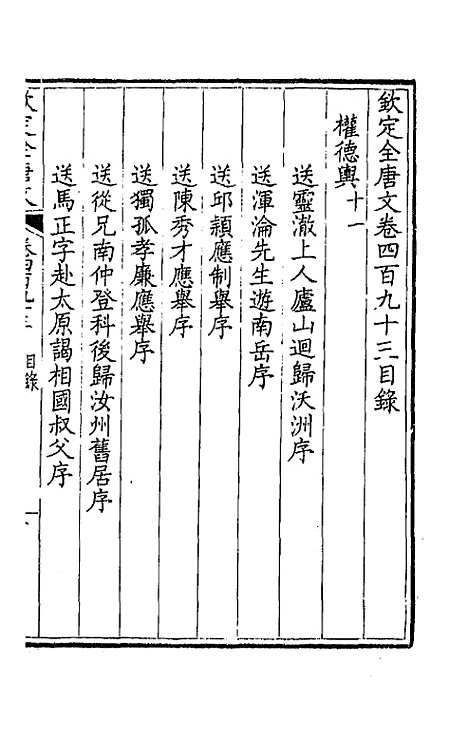 欽定全唐文卷四百九十三目錄
權德輿十一
送靈澈上人廬山迴歸沃洲序
送渾淪先生遊南岳序
送邱頴應制舉序
送陳秀才應舉序
送獨孤孝廉應舉序
送從兄南仲登科後歸汝州舊居序
送馬正字赴太原謁相國叔父序
欽定全唐文 卷四百九十三 目錄 一